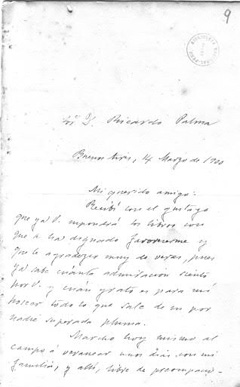 9
Sr. D. Ricardo Palma
Buenos Aires, 14 Marzo de
Mi querido amigo:
Recibí con el
que ya V. los libros con
que á ha dignado favorecerme y
que le agradezco muy de veras, pues
ya sabe cuánta admiración siento
por V. y cuan grato es para mí
todo lo que sale de su
pluma.
Marcho hoy mismo al
campo á veranear unos dias con mi
familia, y allí, libre de